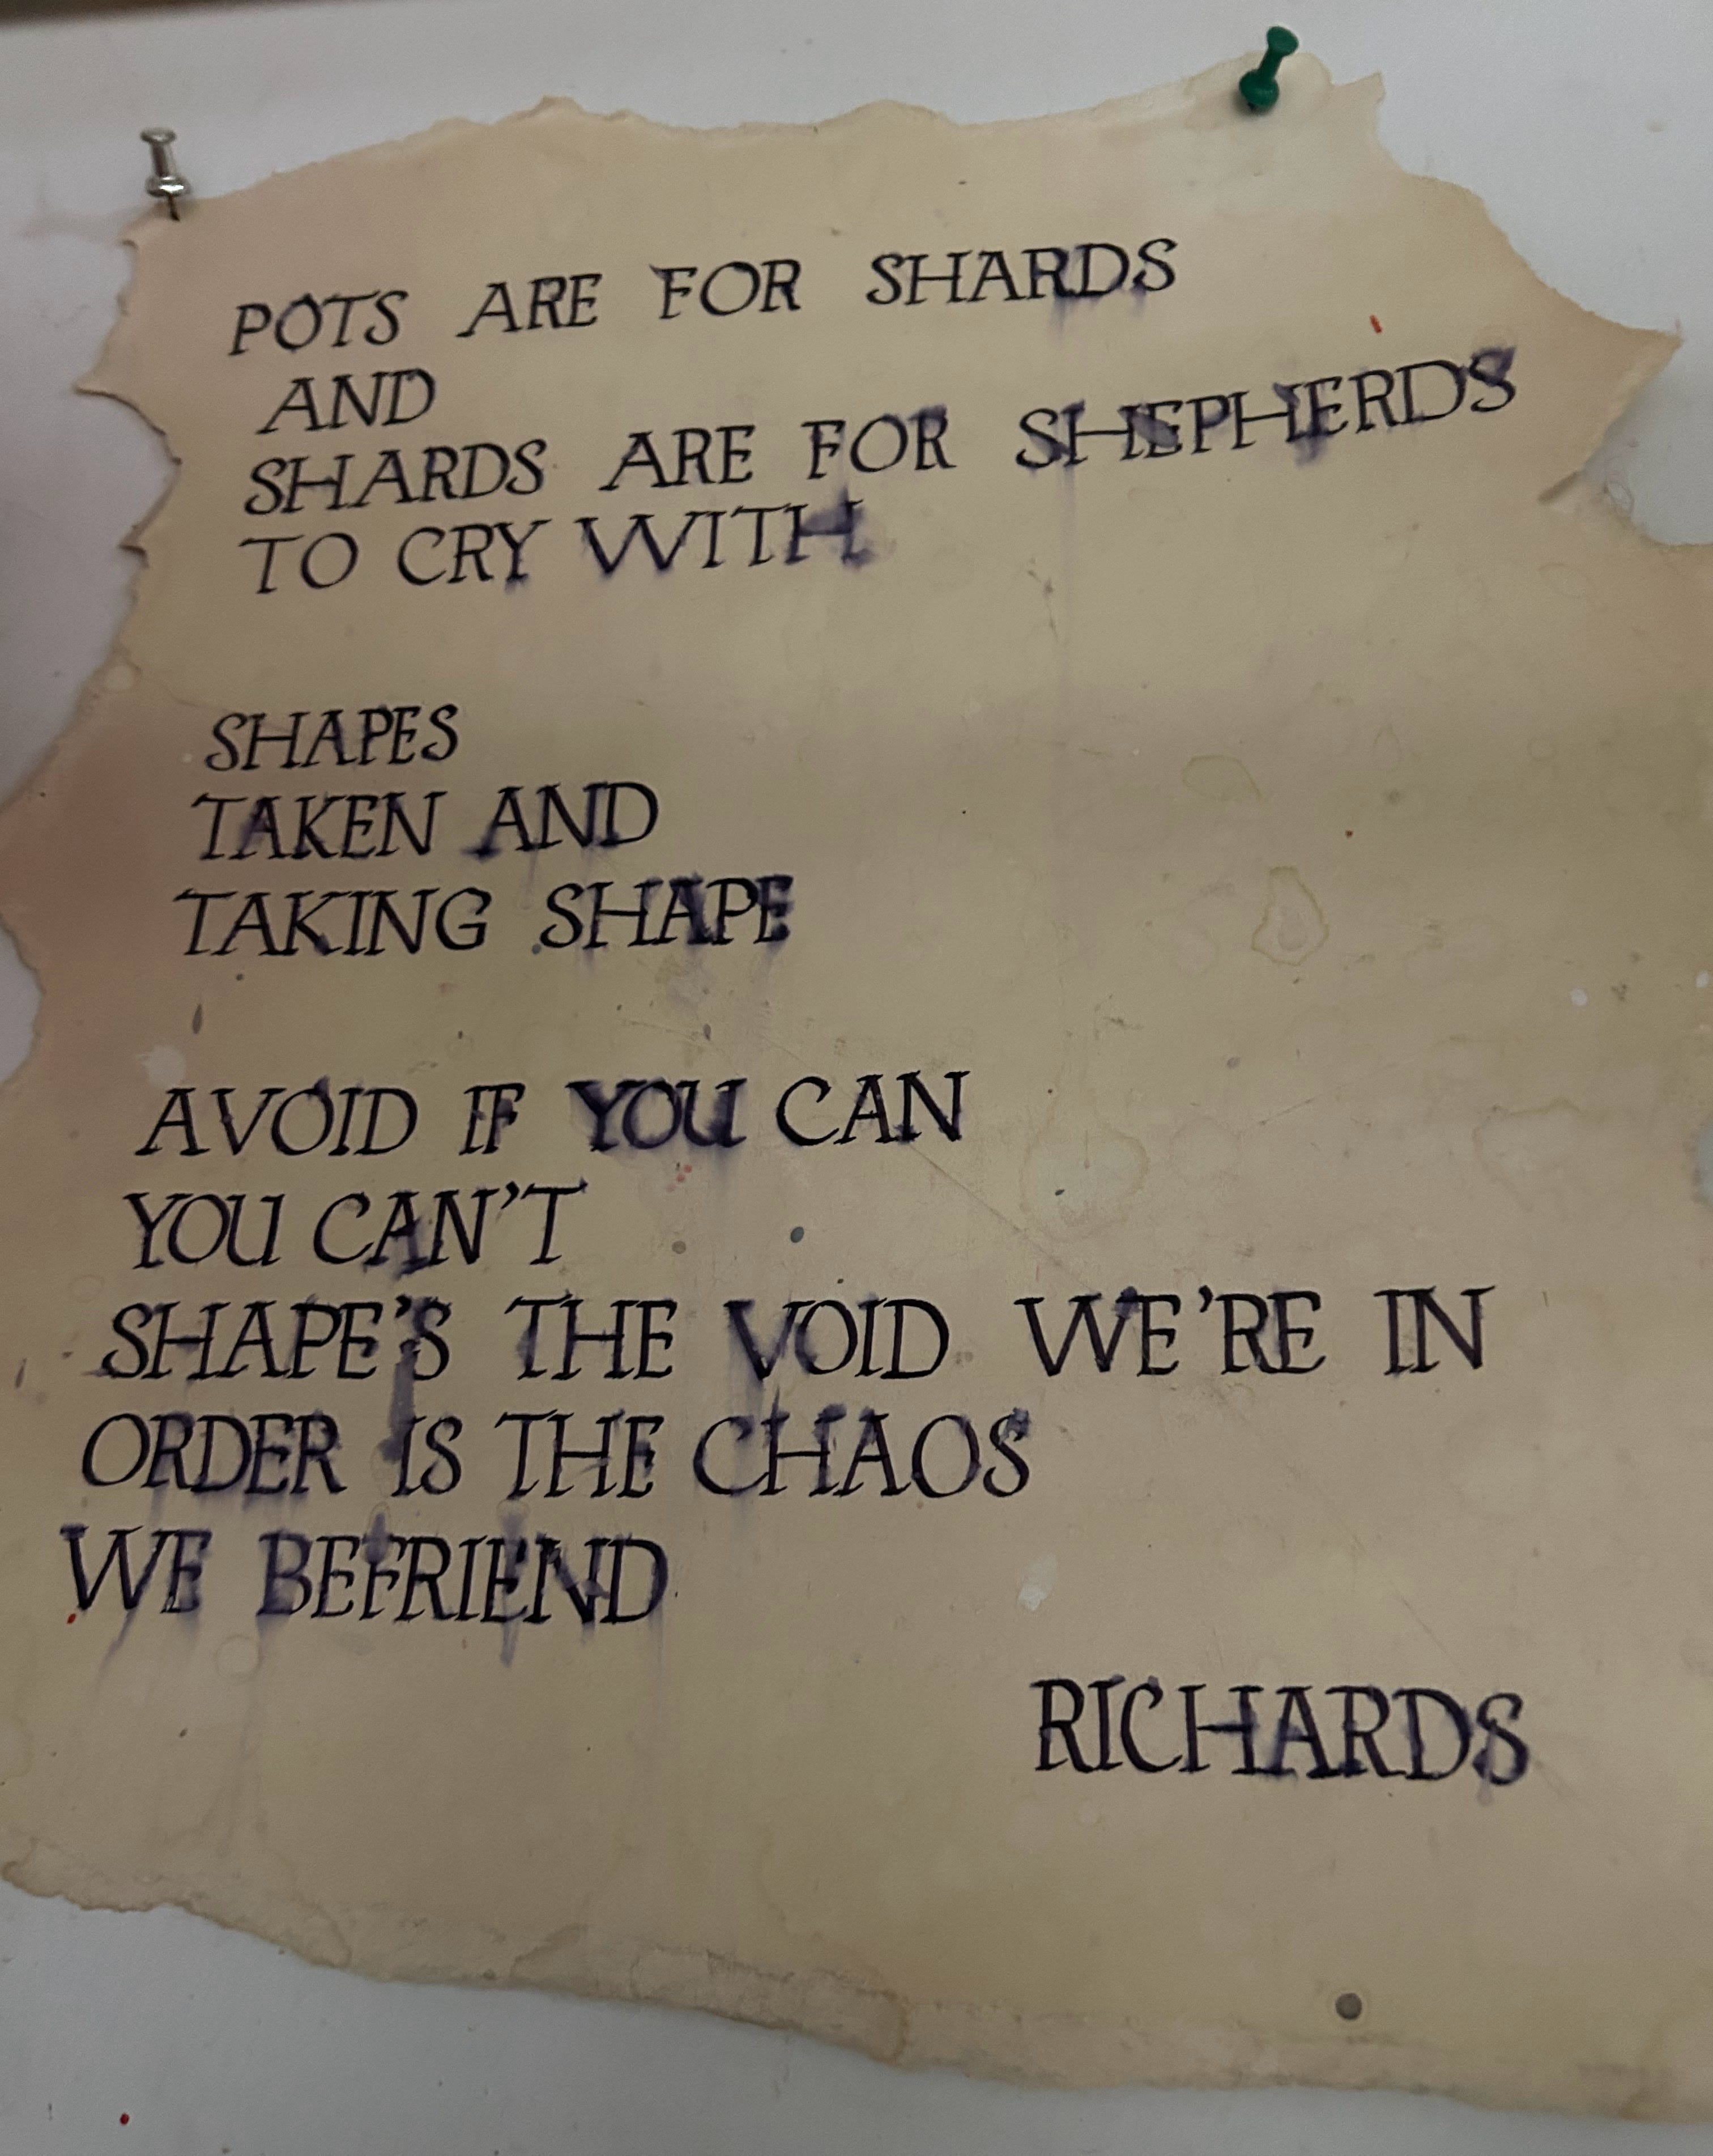 POTS ARE FOR SHARDS
AND
SHARDS ARE FOR SHEPHERDS
TO CRY WITH
SHAPES
TAKEN AND
TAKING SHAPE
AVOID IF YOU CAN
YOU CAN'T
SHAPE'S THE VOID WE'RE IN
ORDER IS THE CHAOS
WE BEFRIEND
RICHARDS